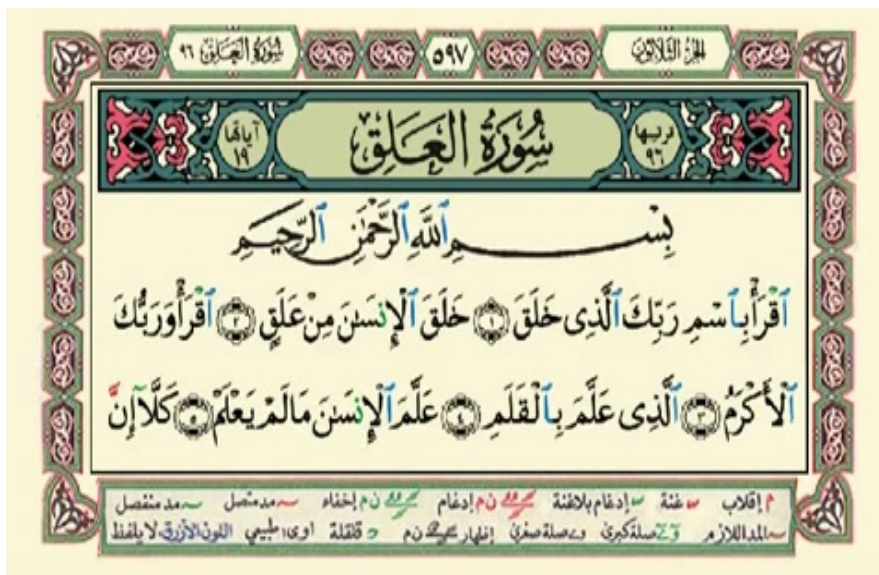 سُورَةُ العَلَقِ ٩٦ ٥٩٧ الجُزءُ الثَّلَاثُونَ
ترتيبها ٩٦ سُورَةُ العَلَقِ آياتها ١٩
بِسْمِ ٱللَّهِ ٱلرَّحْمَٰنِ ٱلرَّحِيمِ
ٱقْرَأْ بِٱسْمِ رَبِّكَ ٱلَّذِى خَلَقَ ١ خَلَقَ ٱلْإِنسَٰنَ مِنْ عَلَقٍ ٢ ٱقْرَأْ وَرَبُّكَ
ٱلْأَكْرَمُ ٣ ٱلَّذِى عَلَّمَ بِٱلْقَلَمِ ٤ عَلَّمَ ٱلْإِنسَٰنَ مَا لَمْ يَعْلَمْ ٥ كَلَّآ إِنَّ
م إقلاب غنة إدغام بلاغنة ن م إدغام ن م إخفاء مد متصل مد منفصل
المد اللازم صلة كبرى صلة صغرى إظهار ن م قلقلة اوى: طبيعي اللون الأزرق لا يلفظ